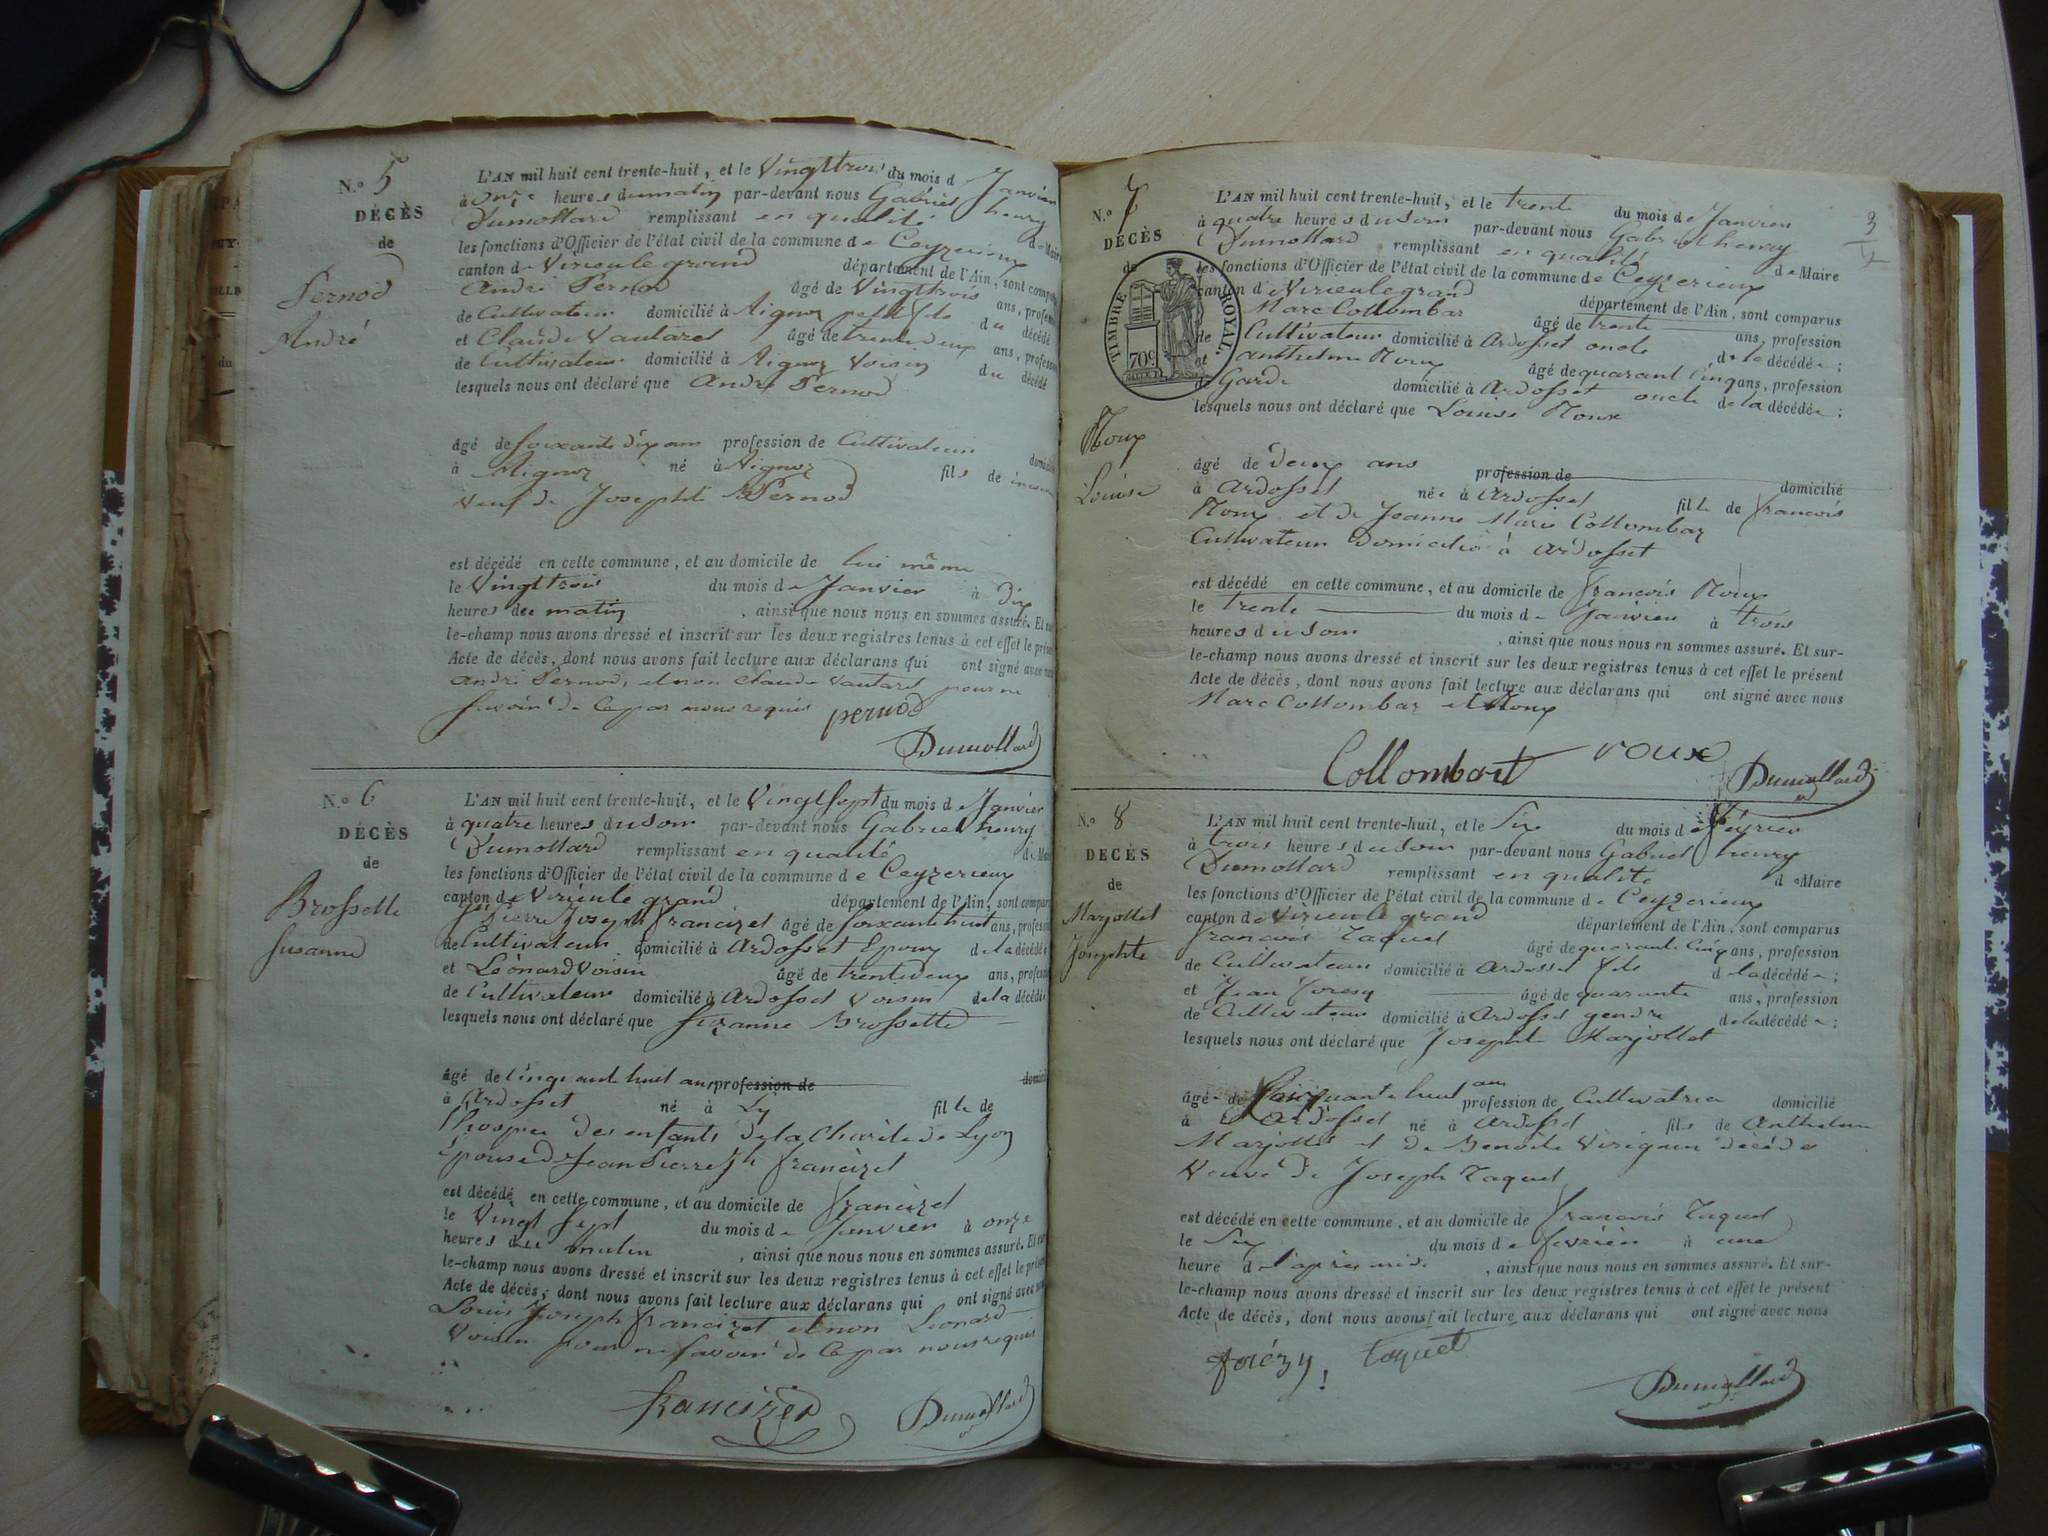 N.º 5
DÉCÈS
de
Pernod
André
L'AN mil huit cent trente-huit, et le Vingttrois du mois de Janvier
à onze heures du matin par-devant nous Gabriel henry
Dumollard remplissant en qualité de Maire
les fonctions d'Officier de l'état civil de la commune de Ceyzerieux
canton de Virieu le grand département de l'Ain, sont comp
André Pernod âgé de Vingttrois ans, profess
de Cultivateur domicilié à Aignoz petit fils du décédé
et Claude Vautaret âgé de trente deux ans, profession
de Cultivateur domicilié à Aignoz Voisin du décédé
lesquels nous ont déclaré que André Pernod
âgé de soixante dix ans profession de Cultivateur domicilié
à Aignoz né à Aignoz fils de
veuf de Josephte Pernod
est décédé en cette commune, et au domicile de lui même
le Vingttrois du mois de Janvier à dix
heures du matin , ainsi que nous nous en sommes assuré. Et sur
le-champ nous avons dressé et inscrit sur les deux registres tenus à cet effet le prése
Acte de décès, dont nous avons fait lecture aux déclarans qui ont signé avec nous
André Pernod, et non Claude Vautaret pour ne
Savoir de ce par nous requis pernod
Dumollard
N.º 6
DÉCÈS
de
Brossette
Susanne
L'AN mil huit cent trente-huit, et le Vingt Sept du mois de Janvier
à quatre heures du soir par-devant nous Gabriel henry
Dumollard remplissant en qualité de Maire
les fonctions d'Officier de l'état civil de la commune de Ceyzerieux
canton de Virieu le grand département de l'Ain, sont compar
Pierre Joseph Francizet âgé de soixante huit ans, profess
de Cultivateur domicilié à Ardosset Epoux de la décédée
et Léonard Voisin âgé de trente deux ans, profess
de Cultivateur domicilié à Ardosset Voisin de la décédée
lesquels nous ont déclaré que Suzanne Brossette
âgé de Cinquante huit ans profession de domicilié
à Ardosset né à Ly fille de
l'hospice des enfants de la Charité de Lyon
Epouse de Jean Pierre Jh Francizet
est décédé en cette commune, et au domicile de Francizet
le Vingt Sept du mois de Janvier à onze
heures du matin , ainsi que nous nous en sommes assuré. Et sur
le-champ nous avons dressé et inscrit sur les deux registres tenus à cet effet le prése
Acte de décès, dont nous avons fait lecture aux déclarans qui ont signé avec nous
Louis Joseph Francizet et non Léonard
Voisin pour ne savoir de ce par nous requis
francizet Dumollard
N.º 7
DÉCÈS
de
Roux
Louise
TIMBRE ROYAL.
70c
3
L'AN mil huit cent trente-huit, et le trente du mois de Janvier
à quatre heures du soir par-devant nous Gabriel henry
Dumollard remplissant en qualité de Maire
les fonctions d'Officier de l'état civil de la commune de Ceyzerieux
canton de Virieu le grand département de l'Ain, sont comparus
Marc Collombar âgé de trente ans, profession
de Cultivateur domicilié à Ardosset oncle de la décédée ;
et Anthelme Roux âgé de quarant Cinq ans, profession
de Garde domicilié à Ardosset oncle de la décédée ;
lesquels nous ont déclaré que Louise Roux
âgé de deux ans profession de domicilié
à Ardosset née à Ardosset fille de francois
Roux et de Jeanne Marie Collombar
Cultivateur domicilié à Ardosset
est décédé en cette commune, et au domicile de francois Roux
le trente du mois de Janvier à trois
heures du soir , ainsi que nous nous en sommes assuré. Et sur-
le-champ nous avons dressé et inscrit sur les deux registres tenus à cet effet le présent
Acte de décès, dont nous avons fait lecture aux déclarans qui ont signé avec nous
Marc Collombar et Roux
Collombart roux Dumollard
N.º 8
DÉCÈS
de
Marjollet
Josephte
L'AN mil huit cent trente-huit, et le Six du mois de février
à trois heures du soir par-devant nous Gabriel henry
Dumollard remplissant en qualité de Maire
les fonctions d'Officier de l'état civil de la commune de Ceyzerieux
canton de Virieu le grand département de l'Ain, sont comparus
francois Taquet âgé de quarante Cinq ans, profession
de Cultivateur domicilié à Ardosset fils de la décédée ;
et Jean âgé de quarante ans, profession
de Cultivateur domicilié à Ardosset gendre de la décédée ;
lesquels nous ont déclaré que Josephte Marjollet
âgé de huit ans profession de Cultivatrice domicilié
à Ardosset né à Ardosset fils de Anthelme
Marjollet et de Benoite Virignin décédés
veuve de Joseph Taquet
est décédé en cette commune, et au domicile de francois Taquet
le Six du mois de février à une
heure de l'apres midi , ainsi que nous nous en sommes assuré. Et sur-
le-champ nous avons dressé et inscrit sur les deux registres tenus à cet effet le présent
Acte de décès, dont nous avons fait lecture aux déclarans qui ont signé avec nous
taquet
Dumollard